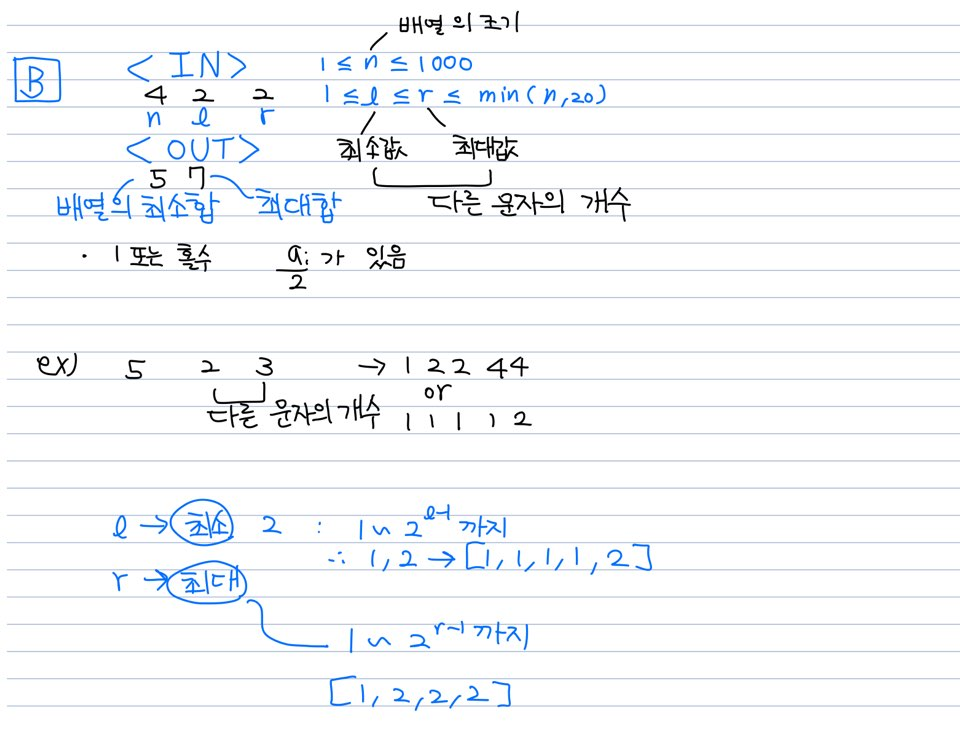 배열의 크기
B
<IN> 1 ≤ n ≤ 1000
4 2 2 1 ≤ l ≤ r ≤ min(n,20)
n l r
<OUT> 최소값 최대값
5 7
배열의 최소합 최대합 다른 문자의 개수
· 1 또는 홀수 ai/2 가 있음
ex) 5 2 3 → 1 2 2 4 4
or
다른 문자의 개수 1 1 1 1 2
l → 최소 2 : 1 ~ 2^l-1 까지
∴ 1, 2 → [1, 1, 1, 1, 2]
r → 최대
1 ~ 2^r-1 까지
[1, 2, 2, 2]